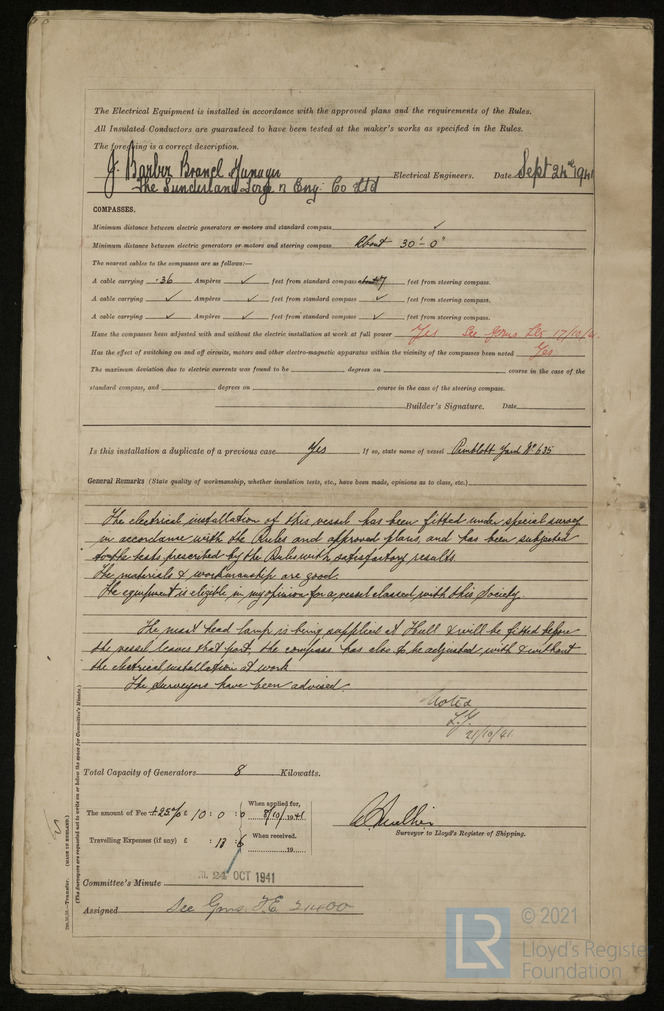 The Electrical Equipment is installed in accordance with the approved plans and the requirements of the Rules.
All Insulated Conductors are guaranteed to have been tested at the maker's works as specified in the Rules.
The foregoing is a correct description.
J. Barber Branch Manager
The Sunderland Forge & Eng: Co Ltd Electrical Engineers. Date Sept 24th 1941
COMPASSES.
Minimum distance between electric generators or motors and standard compass ✓
Minimum distance between electric generators or motors and steering compass About 30'-0"
The nearest cables to the compasses are as follows:—
A cable carrying .36 Ampères ✓ feet from standard compass about 7 feet from steering compass.
A cable carrying ✓ Ampères ✓ feet from standard compass ✓ feet from steering compass.
A cable carrying ✓ Ampères ✓ feet from standard compass ✓ feet from steering compass.
Have the compasses been adjusted with and without the electric installation at work at full power Yes See Gms Ltr 17/10/41.
Has the effect of switching on and off circuits, motors and other electro-magnetic apparatus within the vicinity of the compasses been noted Yes
The maximum deviation due to electric currents was found to be degrees on course in the case of the
standard compass, and degrees on course in the case of the steering compass.
Builder's Signature. Date
Is this installation a duplicate of a previous case Yes If so, state name of vessel Pimblott Yard No 635
General Remarks (State quality of workmanship, whether insulation tests, etc., have been made, opinions as to class, etc.)
The electrical installation of this vessel has been fitted under special survey
in accordance with the Rules and approved plans, and has been subjected
to the tests prescribed by the Rules with satisfactory results.
The materials & workmanship are good.
The equipment is eligible in my opinion for a vessel classed with this Society.
The mast head lamp is being supplied at Hull & will be fitted before
the vessel leaves that port, the compass has also to be adjusted with & without
the electrical installation at work
The Surveyors have been advised
Noted
21/10/41
Total Capacity of Generators 8 Kilowatts.
The amount of Fee +25% £ 10 : 0 : 0 When applied for, 8/10/1941
Travelling Expenses (if any) £ : 13 : 6 When received, 19
Surveyor to Lloyd's Register of Shipping.
Committee's Minute 24 OCT 1941
Assigned See Gms F.E.
2m.10.38.—Transfer. (MADE IN ENGLAND.)
(The Surveyors are requested not to write on or below the space for Committee's Minute.)
LR
© 2021
Lloyd's Register
Foundation